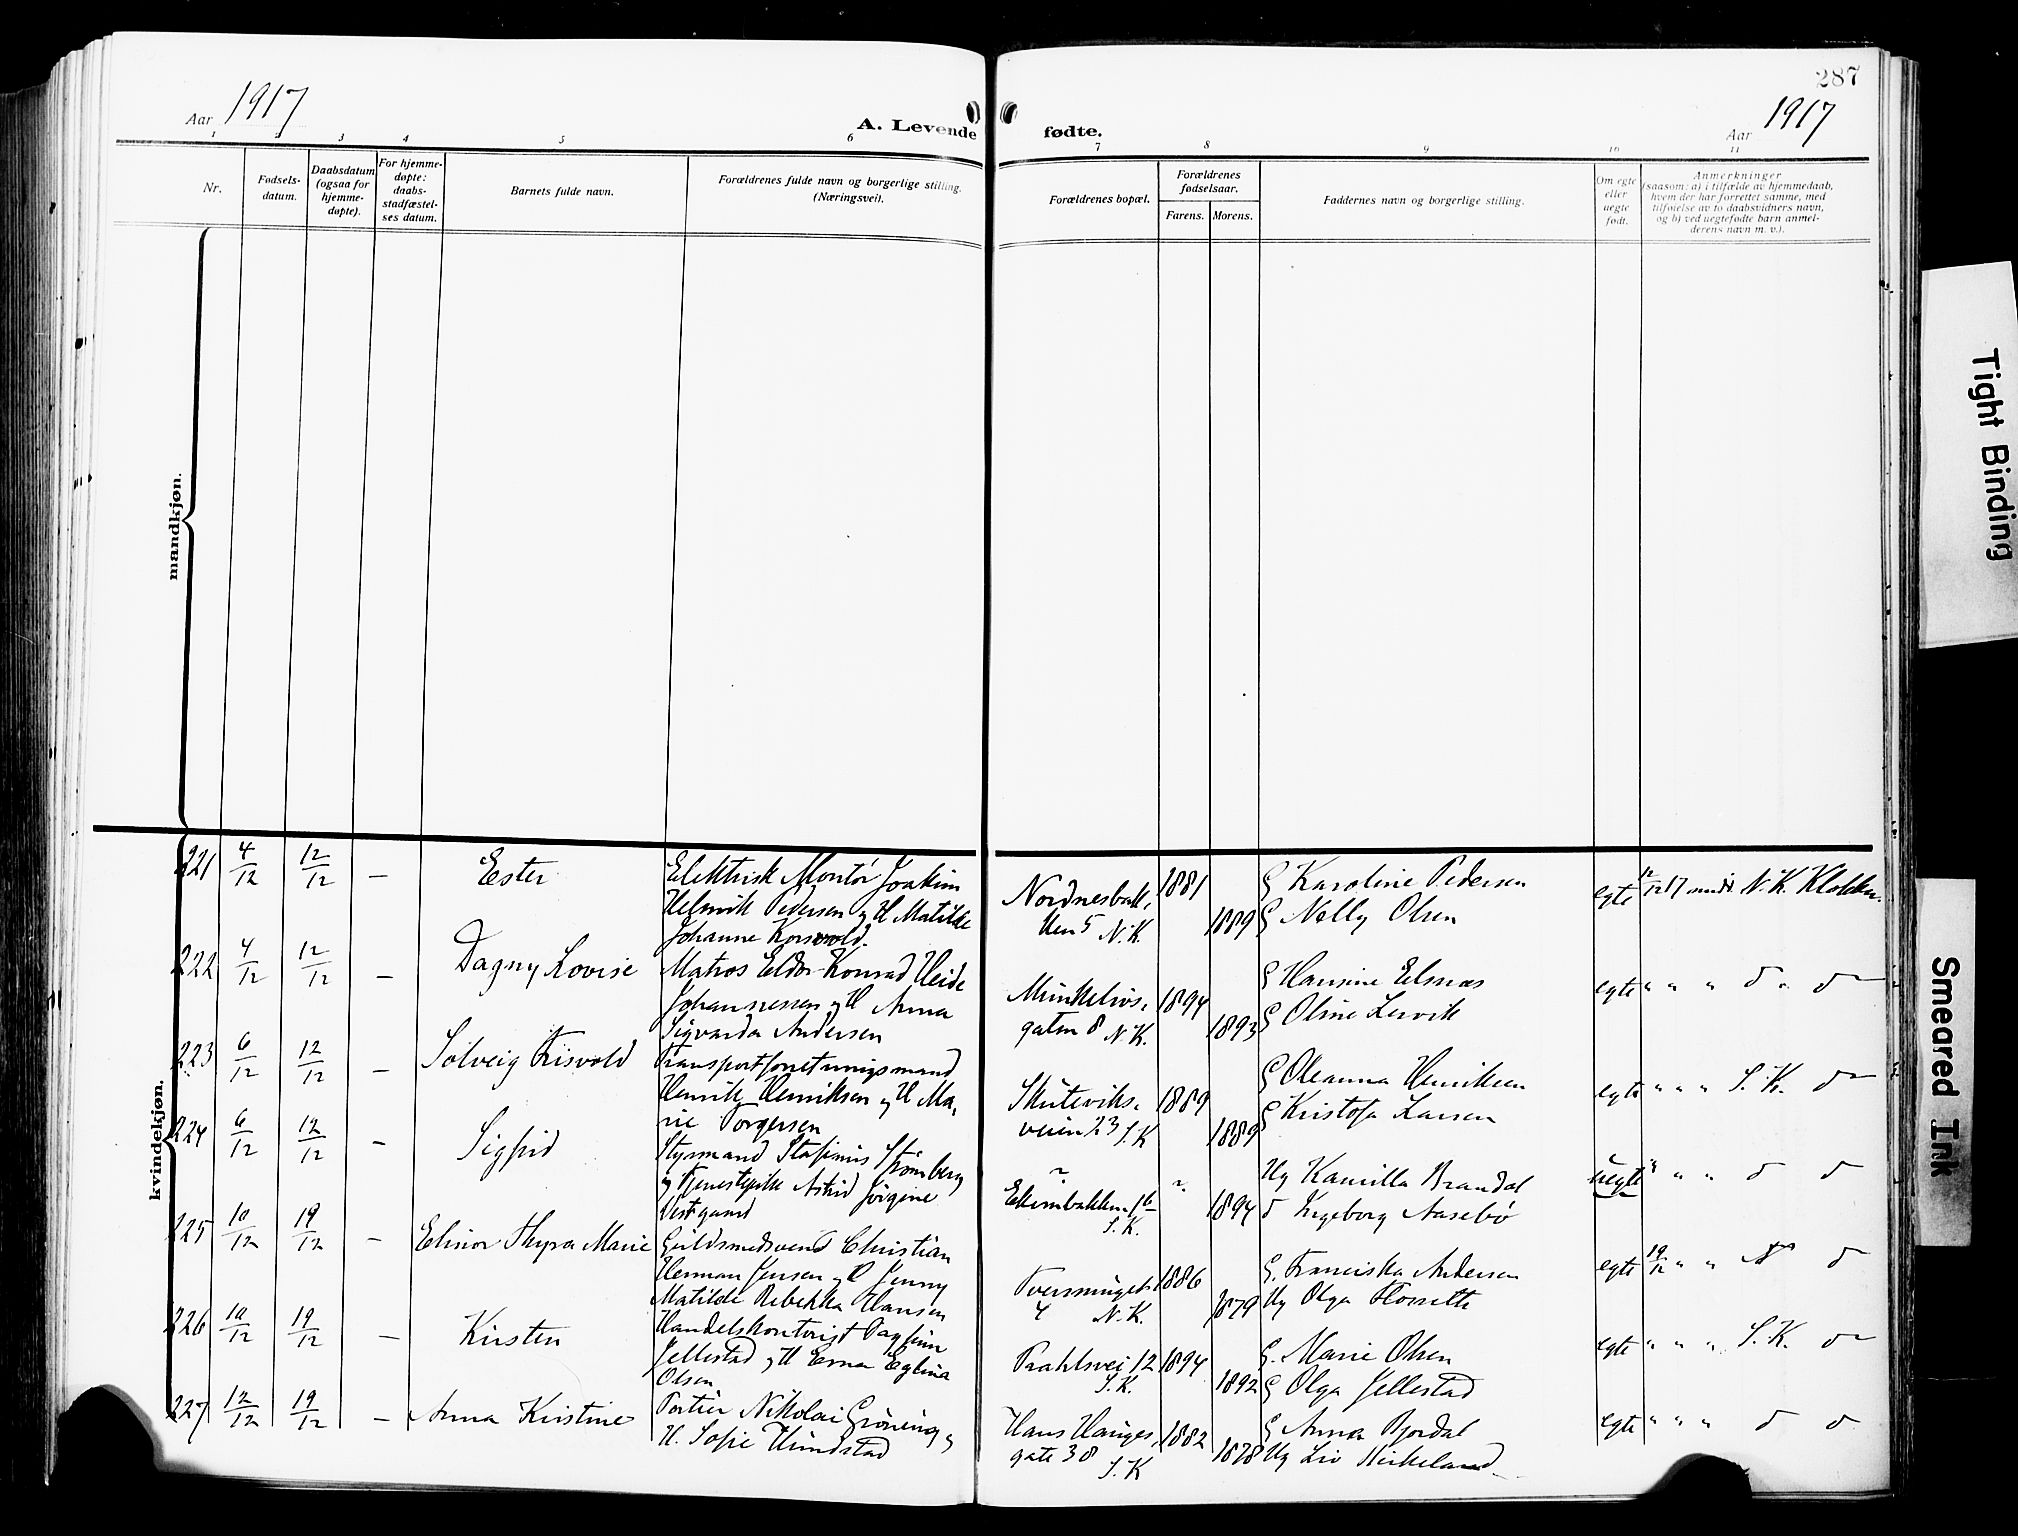 287
Aar 1917
A. Levende fødte.
Aar 1917
1 2 3 4 5 6 7 8 9 10 11
Nr.
Fødsels-
datum.
Daabsdatum
(ogsaa for
hjemme-
døpte).
For hjemme-
døpte:
daabs-
stadfæstel-
ses datum.
Barnets fulde navn.
Forældrenes fulde navn og borgerlige stilling.
(Næringsvei).
Forældrenes bopæl.
Forældrenes
fødselsaar.
Farens. Morens.
Faddernes navn og borgerlige stilling.
Om egte
eller
uegte
født.
Anmerkninger
(saasom: a) i tilfælde av hjemmedaab,
hvem der har forrettet samme, med
tilføielse av to daabsvidners navn,
og b) ved uegtefødte barn anmel-
derens navn m. v.).
mandkjøn.
kvindekjøn.
221 4/12 12/12 — Ester
Elektrisk Montör Joakim
Helmik Pedersen og H Matilde
Johanne Korsvold.
Nordnesbak,
ken 5 N.K.
1881 1889
G Karoline Pedersen
G Nelly Olsen
egte 12/12 17 N.K. Klokker.
222 4/12 12/12 — Dagny Lovise
Matros Eldor Konrad Heide
Johannessen og H Anna
Sigvarda Andersen
Munkelivs,
gaten 8 N.K.
1894 1893
G Hansine Eelsnæs
G Oline Lervik
egte " " " d " d
223 6/12 12/12 — Solveig Frisvold
Transportforretningsmand
Henrik Henriksen og H Ma,
rie Torgersen
Skuteviks,
veien 23 S.K
1889 1889
G Oleanna Henriksen
G Kristofa Larsen
egte " " " S.K. d
224 6/12 12/12 — Sigfrid
Styrmand Stafinus Strömberg
og Tjenestepike Astrid Jörgine
Vestgaard
Ekrenbakken 1b
S.K.
~ 1894
Ug Kamilla Brandal
d Ingeborg Aasebö
uegte " " " d d
225 10/12 19/12 — Elinor Thyra Marie
Guldsmedsvend Christian
Herman Jensen og H Jenny
Matilde Rebekka Hansen
4 N.K.
1886 1879
G. Franciska Andersen
Ug Olga
egte 19/12 " " N d
226 10/12 19/12 — Kirsten
Handelskontorist Dagfinn
Jellestad og H Erna Egline
Olsen
Prahlsvei 12
S.K.
1894 1892
G. Marie Olsen
G Olga Jellestad
egte " " " S.K. d
227 12/12 19/12 — Anna Kristine
Portier Nikolai Gröning og
H. Sofie Hundstad
Hans Hauges,
gate 38
S.K
1882 1878
G Anna Bjordal
Ug Liv Kirkeland
egte " " " d d
Tight Binding
Smeared Ink